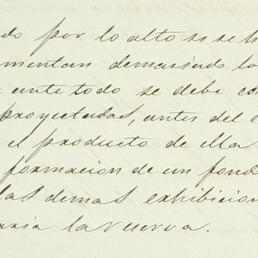 do por lo alto si se h
mentan demasiado la
ante todo se debe co
proyectadas, antes del e
el producto de ella
formacion de un fond
las demas exhibicion
aria la reserva.